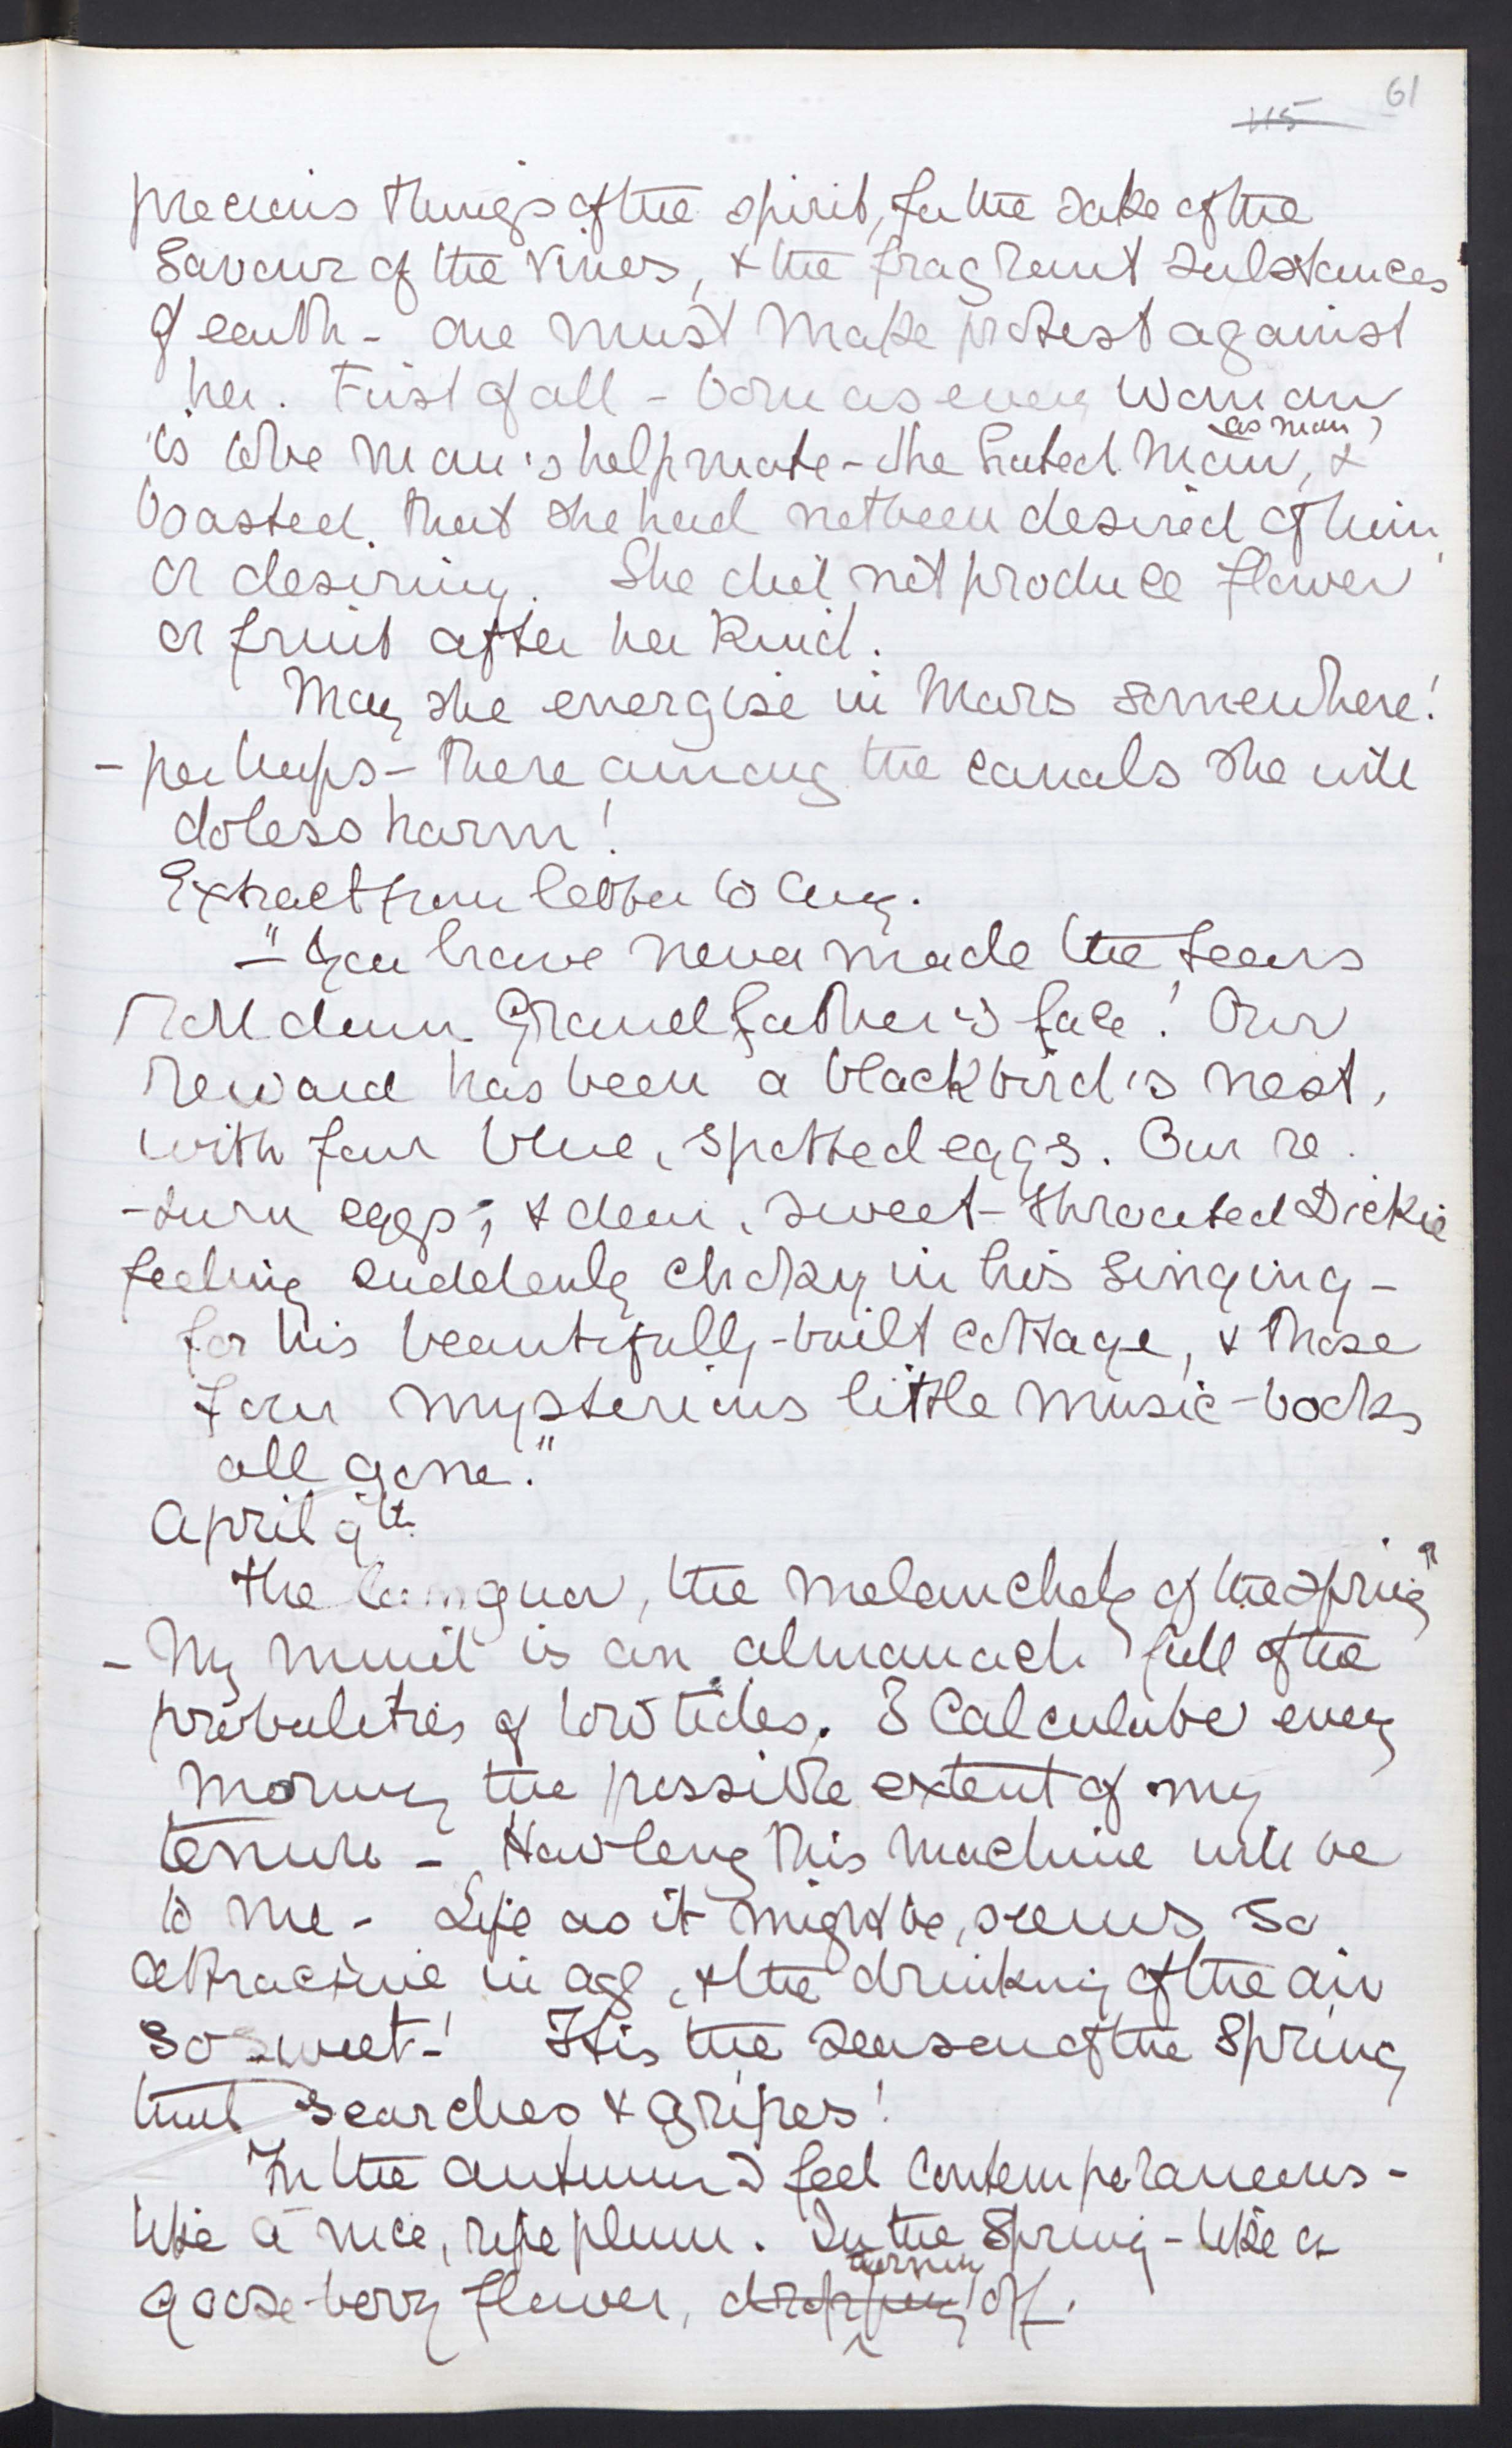 61
115
precious things of the spirit, for the sake of the
Savour of the vines, & the fragrant substances
of earth - one must make protest against
her. First of all - born as every woman
is to be man's helpmate - she hated man, as man, &
boasted that she had not been desired of him
or desiring. She did not produce flower
or fruit after her kind.
May she energise in Mars somewhere!
- perhaps - there among the canals she will
do less harm!
Extract from letter to Amy.
- "You have never made the tears
roll down Grandfather's face! Our
reward has been a blackbird's nest,
with four blue, spotted eggs. Our re
-turn eggs; & dear, sweet-throated Dickie
feeling suddenly choky in his singing -
for his beautifully-built cottage, & those
four mysterious little music-books
all gone."
April 9th
The languor, the melancholy of the Spring"
- My mind is an almanach full of the
probabilities of low tides. I calculate every
morning the possible extent of my
tenure - How long this machine will be
to me - Life as it might be, seems so
attractive in age, & the drinking of the air
so sweet-! It is the season of the Spring
that searches & gripes!
In the autumn I feel contemporaneous -
like a nice, ripe plum. In the Spring - like a
goose-berry flower, dropping turning off.